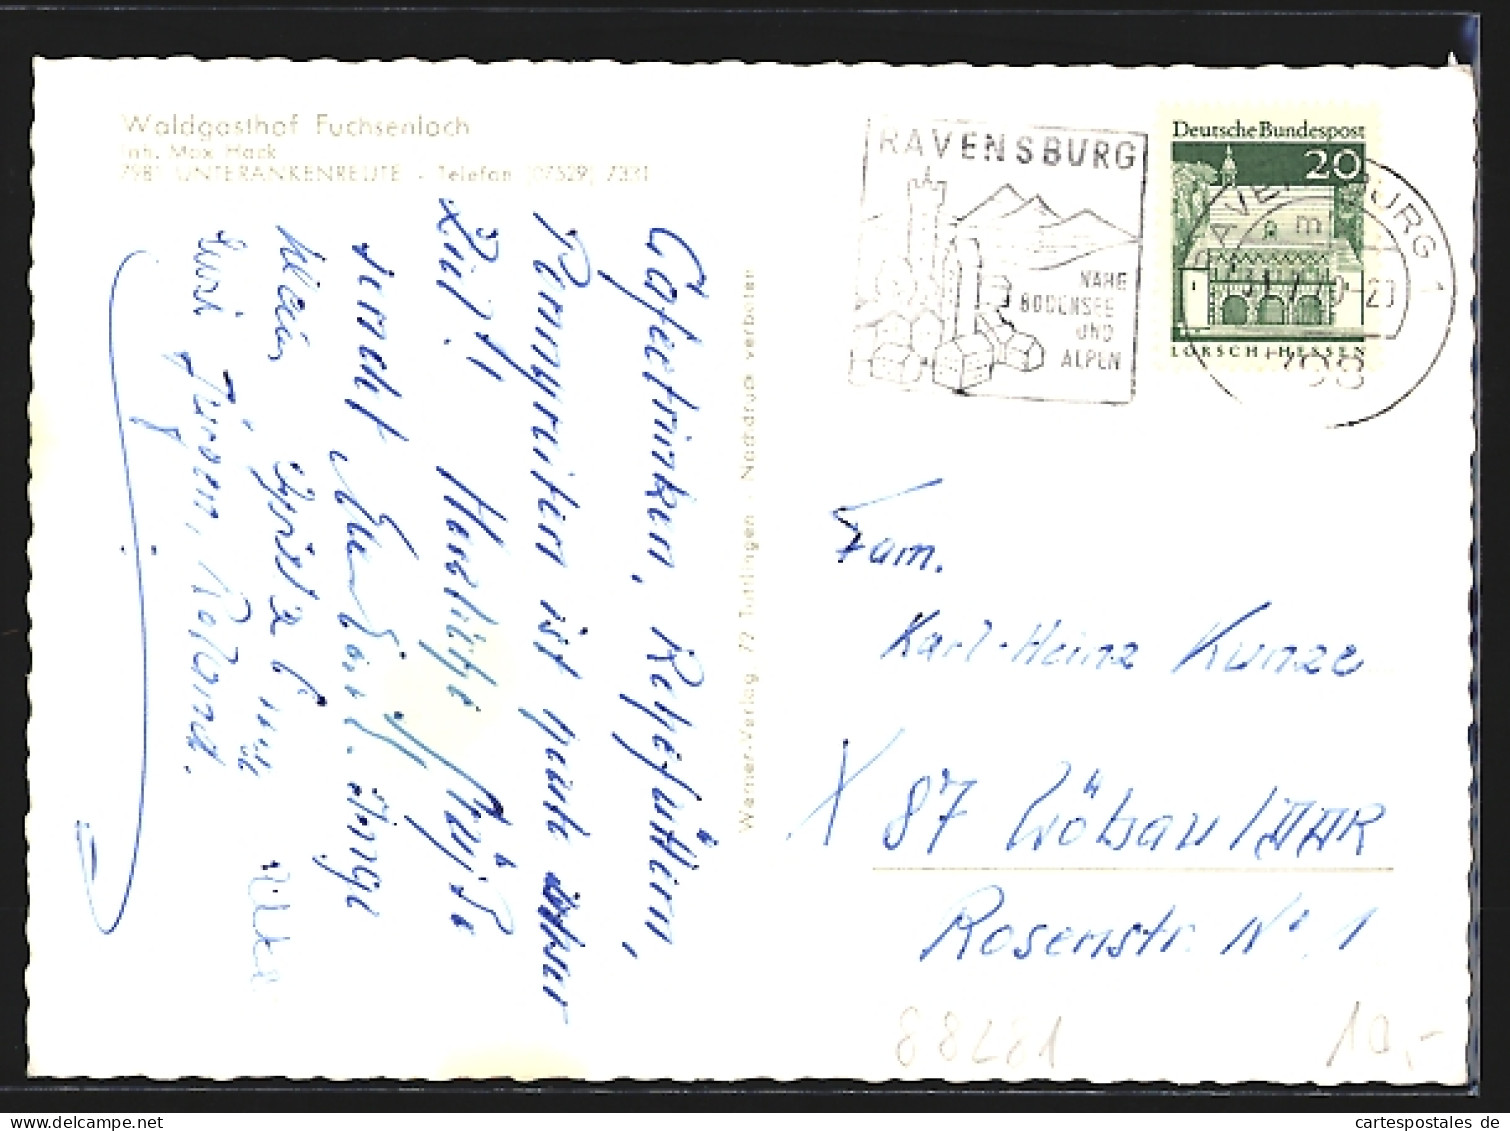 Waldgasthof Fuchsenloch
Inh. Max Hack
7981 UNTERANKENREUTE - Telefon (07529) 7331
Cafeetrinken, Rehefüttern,
Ponnyreiten ist heute unser
Ziel!! Herzliche Grüße
sendet Inge
Klein
Euer Jürgen, Roland.
Werner-Verlag, 72 Tuttlingen · Nachdruck verboten
RAVENSBURG
NAHE
BODENSEE
UND
ALPEN
Deutsche Bundespost
20
LORSCH/HESSEN
RAVENSBURG 1
m
798
Fam.
Karl-Heinz Kunze
X 87 Löbau/DDR
Rosenstr. Nr. 1
88221
10,-
www.oldthing.de
cartespostales de